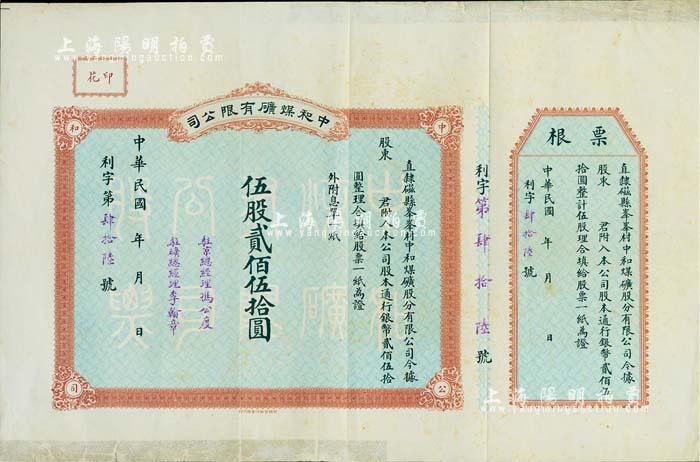 上海陽明拍賣
www.yangmingauction.com
印花
中和煤礦有限公司
中
和
公
司
直隸磁縣峯峯村中和煤礦股份有限公司今據
股東　君附入本公司股本通行銀幣貳佰伍拾
圓整理合填給股票一紙為證
外附息單一紙
伍股貳佰伍拾圓
駐京總經理馮公度
駐礦總經理李翰章
中華民國　年　月　日
利字第肆拾陸號
利字第肆拾陸號
票根
直隸磁縣峯峯村中和煤礦股份有限公司今據
股東　君附入本公司股本通行銀幣貳佰伍
拾圓整計伍股理合填給股票一紙為證
中華民國　年　月　日
利字肆拾陸號
上海陽明拍賣
www.yangmingauction.com